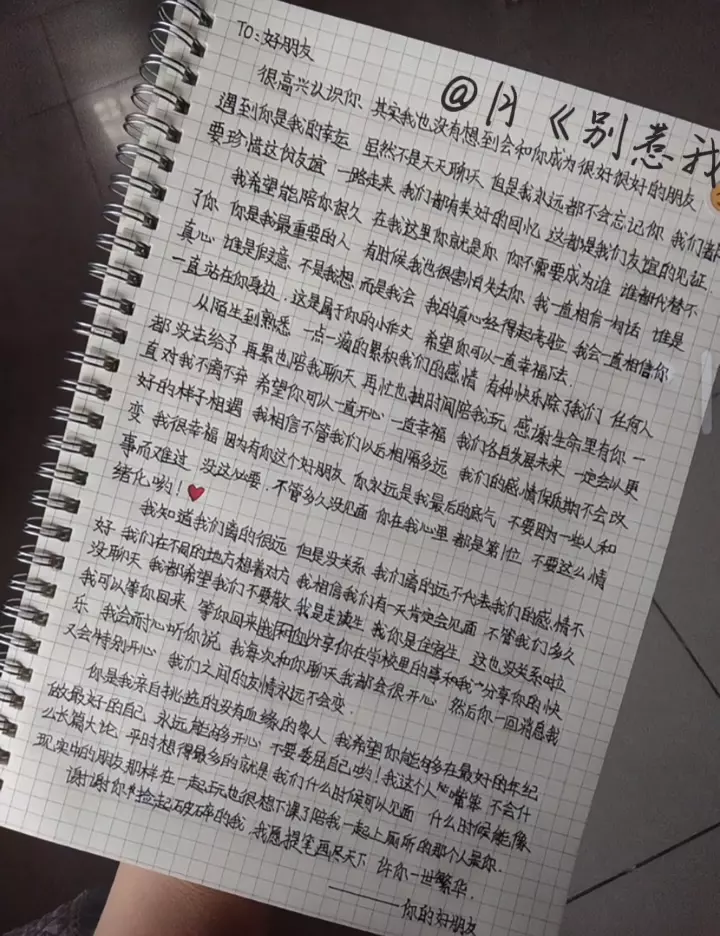 TO:好朋友
@闪《别惹我
很高兴认识你 其实我也没有想到会和你成为很好很好的朋友
遇到你是我的幸运 虽然不是天天聊天 但是我永远都不会忘记你 我们都
要珍惜这份友谊 一路走来 我们都有美好的回忆 这都是我们友谊的见证.
我希望能陪你很久 在我这里你就是你 你不需要成为谁 谁都代替不
了你 你是我最重要的人 有时候我也很害怕失去你 我一直相信一句话 谁是
真心 谁是假意 不是我想 而是我会 我的真心经得起考验 我会一直相信你
一直站在你身边 这是属于你的小作文 希望你可以一直幸福下去.
从陌生到熟悉 一点一滴的累积我们的感情 有种快乐除了我们 任何人
都没法给予 再累也陪我聊天 再忙也抽时间陪我玩 感谢生命里有你 一
直对我不离不弃 希望你可以一直开心 一直幸福 我们各自发展未来 一定会以更
好的样子相遇 我相信不管我们以后相隔多远 我们的感情保质期不会改
变 我很幸福 因为有你这个好朋友 你永远是我最后的底气 不要因为一些人和
事而难过 没这必要. 不管多久没见面 你在我心里 都是第1位 不要这么情
绪化哟!❤
我知道我们离的很远 但是没关系 我们离的远不代表我们的感情不
好 我们在不同的地方想着对方 我相信我们有一天肯定会见面 不管我们多久
没聊天 我都希望我们不要散 我是走读生 我你是住宿生 这也没关系啦
我可以等你回来 等你回来分享你在学校里的事和我一分享你的快
乐 我会耐心听你说 我每次和你聊天我都会很开心 然后你一回消息我
又会特别开心 我们之间的友情永远不会变.
你是我亲自挑选的没有血缘的家人 我希望你能够在最好的年纪
做最好的自己 永远能够开心 不要委屈自己哟!我这个人嘴笨 不会什
么长篇大论 平时想得最多的就是我们什么时候可以见面 什么时候能像
现实中的朋友那样在一起玩也很想下课了陪我一起上厕所的那个人是你.
谢谢你捡起破碎的我 我愿提笔画尽天下 许你一世繁华.
———你的好朋友